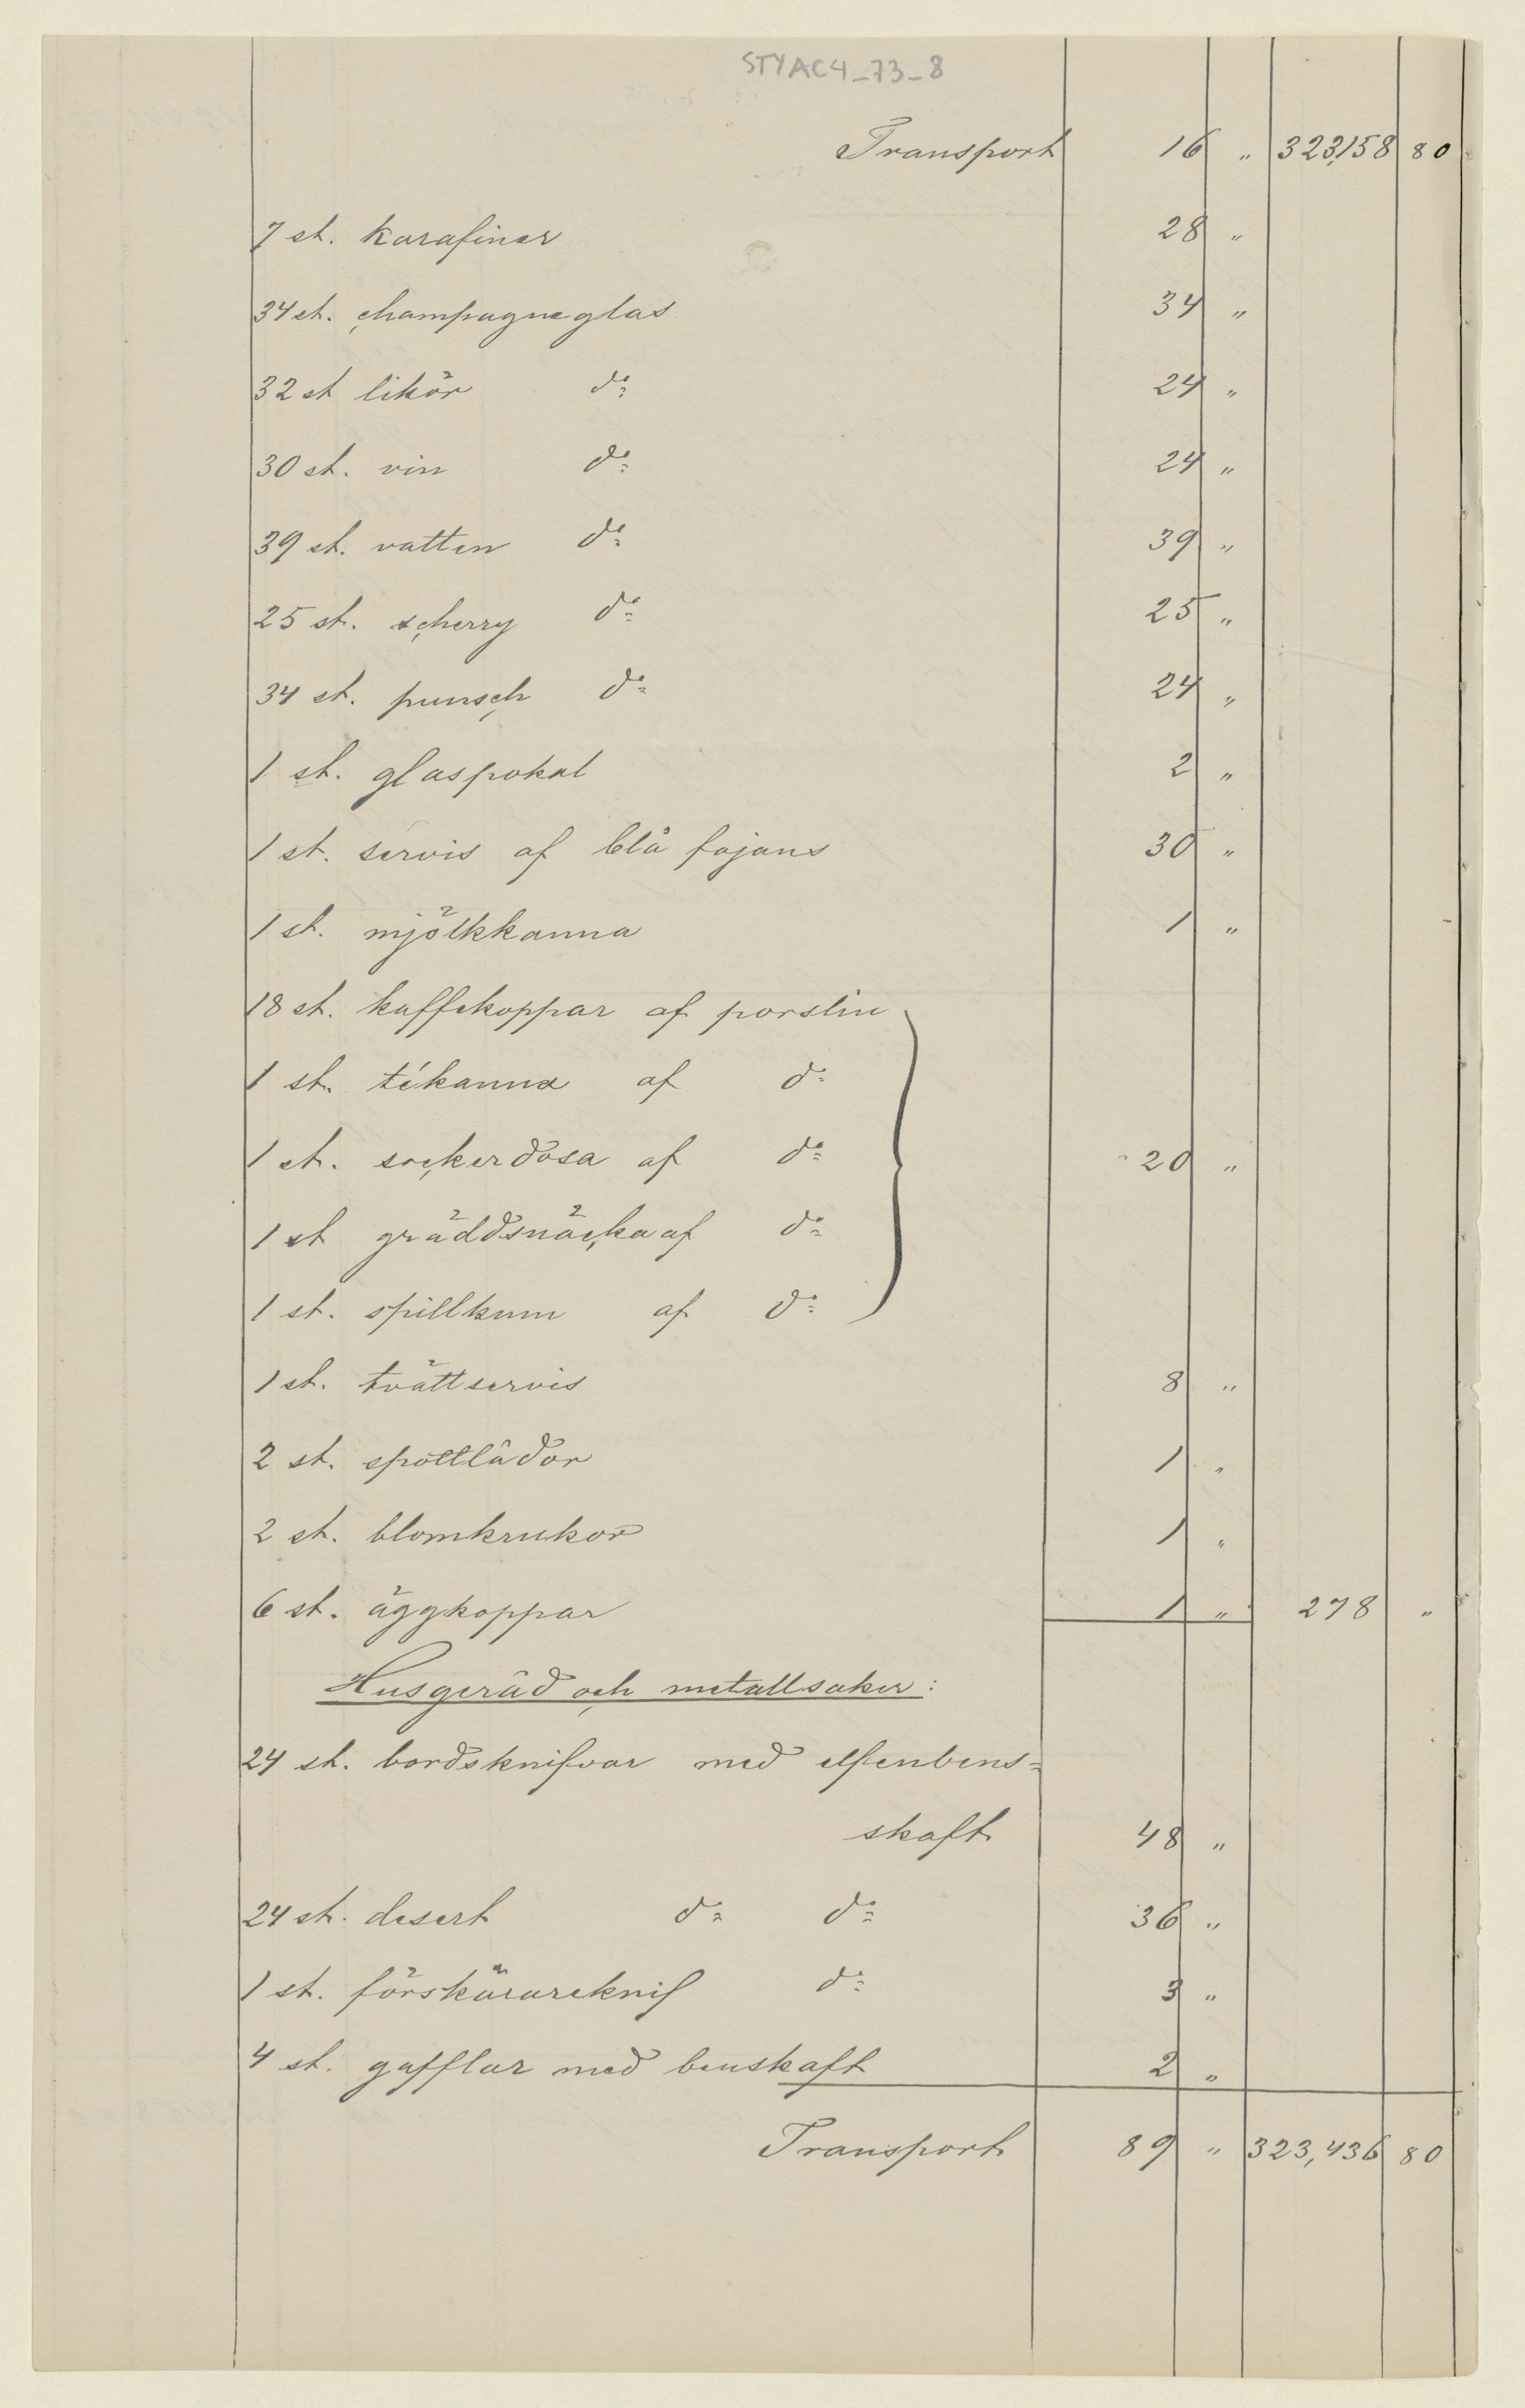 STYAC4_73_8
Transport 16 „ 323,158 80
7 st. karafiner 28 „
34 st. champagneglas 34 „
32 st likör d:o 24 „
30 st. vin d:o 24 „
39 st. vatten d:o 39 „
25 st. scherry d:o 25 „
34 st. punsch d:o 24 „
1 st. glaspokal 2 „
1 st. servis af blå fajans 30 „
1 st. mjölkkanna 1 „
18 st. kaffekoppar af porslin
1 st. tékanna af d:o
1 st. sockerdosa af d:o 20 „
1 st gräddsnäcka af d:o
1 st. spillkum af d:o
1 st. tvättservis 8 „
2 st. spottlådor 1 „
2 st. blomkrukor 1 „
6 st. äggkoppar 1 „ 278 „
Husgeråd och metallsaker:
24 st. bordsknifvar med elfenbens=
skaft 48 „
24 st. desert d:o d:o 36 „
1 st. förskärareknif d:o 3 „
4 st. gafflar med benskaft 2 „
Transport 89 „ 323,436 80